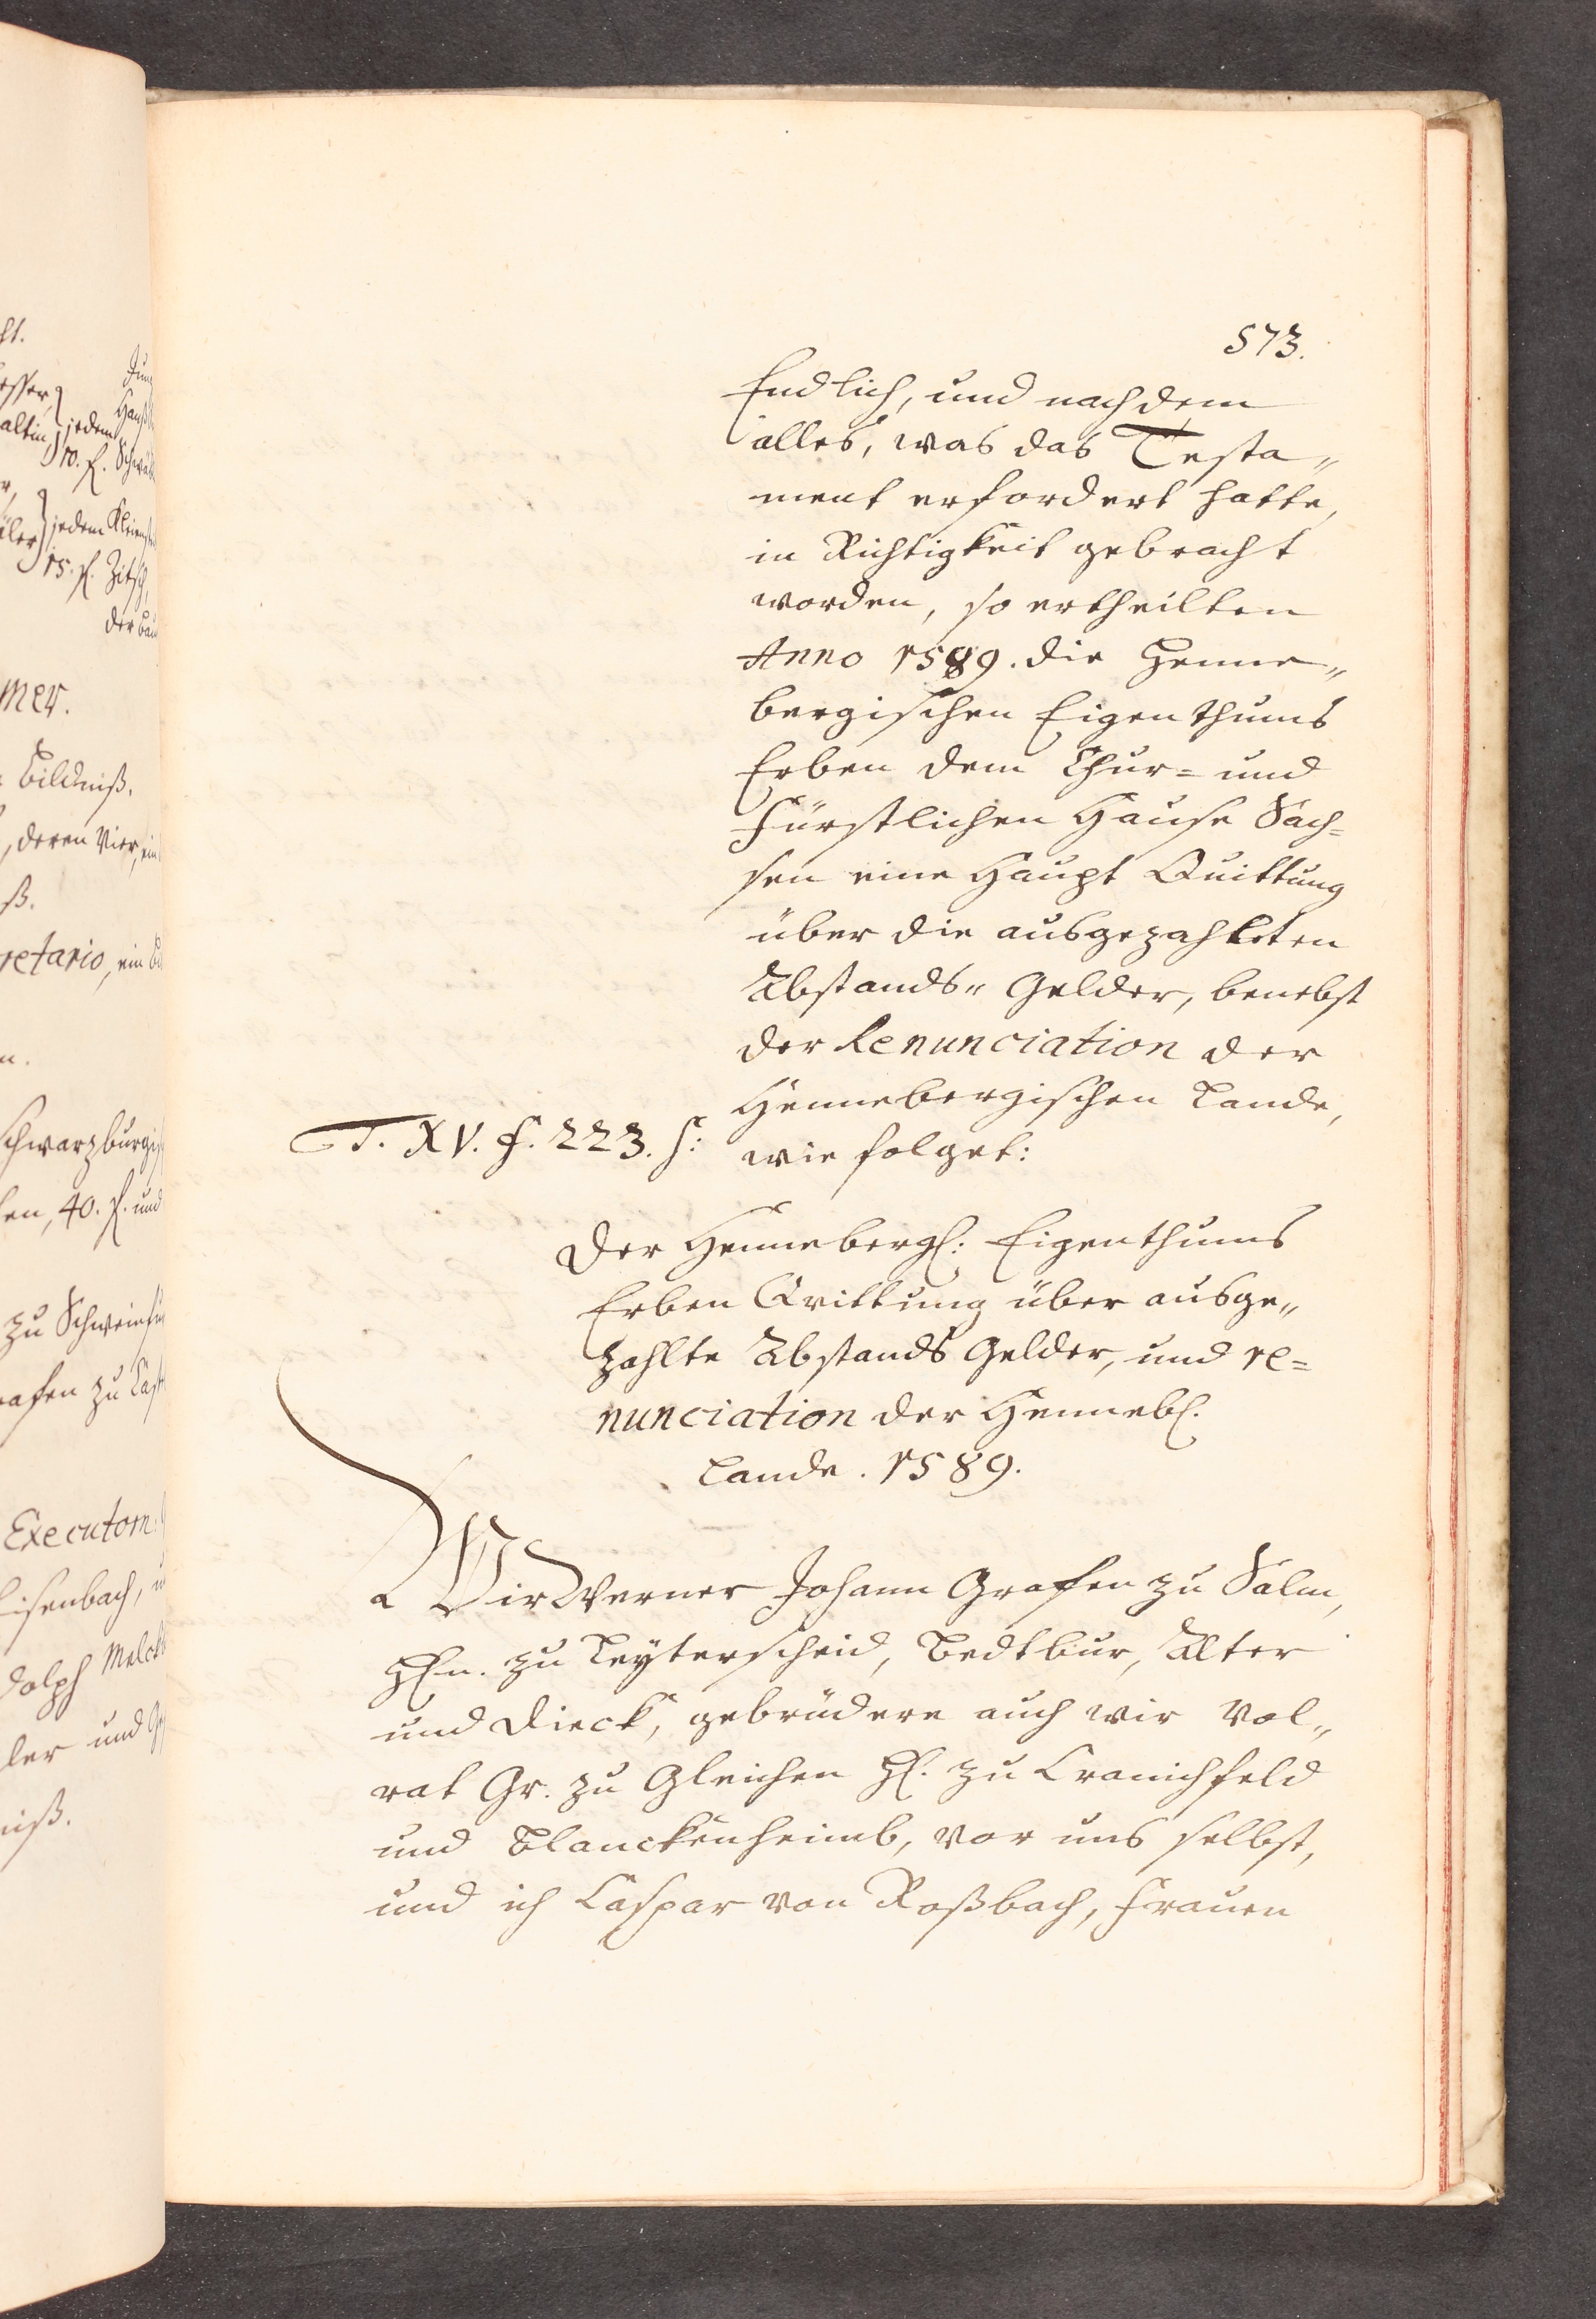 573.
Endlich, und nachdem
alles, was das Testa„
ment erfordert hatte,
in Richtigkeit gebracht
worden, so ertheilten
Anno 1589. die Henne„
bergischen Eigenthums
Erben dem Chur= und
Fürstlichen Hause Sach=
sen eine Haupt Quittung
über die ausgezahleten
Abstands„ Gelder, benebst
der Renunciation der
Hennebergischen Lande,
T. XV. f. 223. s: wie folget:
Der Hennebergs: Eigenthums
Erben Qvittung über ausge„
zahlte Abstands Gelder, und re=
nunciation der Hennebs.
Lande. 1589.
Wir Werner Johann Grafen zu Salm,
Hn. zu Reyterscheid, Bedtbur, Alter
und Dieck, gebrüdere auch wir Vol„
rat Gr. zu Gleichen H. zu Cranichfeld
und Blanckenheimb, vor uns selbst,
und ich Caspar von Roßbach, Frauen
mer.
Bildniß.
, deren Vier, ein
retario, ein
schwarzburgis
40. f. und
zu Schweinfu
Executorn
Eisenbach,
dolph Melch
ler und
niß.